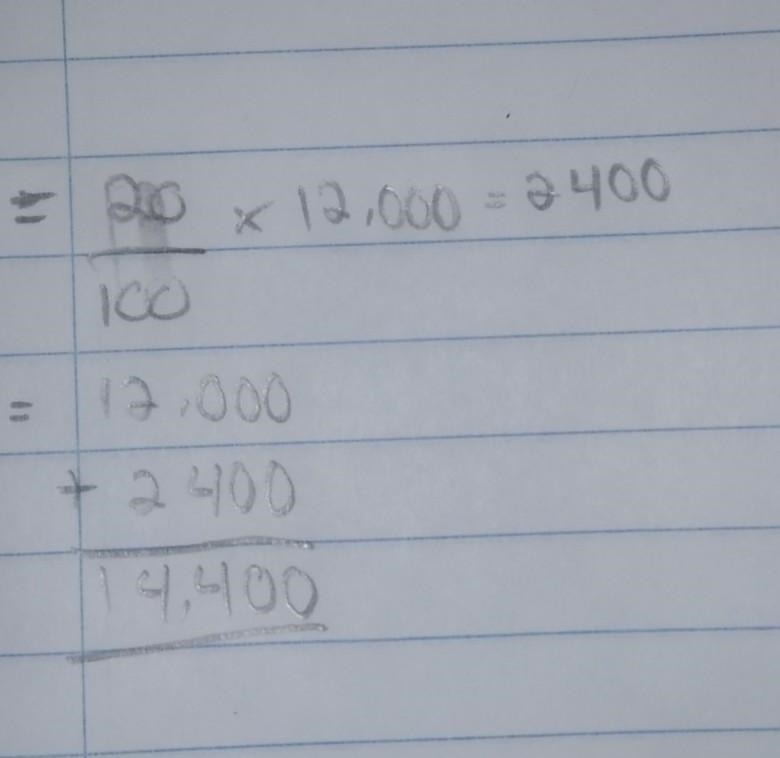 = 20 × 12,000 = 2400
100
= 12,000
+ 2400
14,400